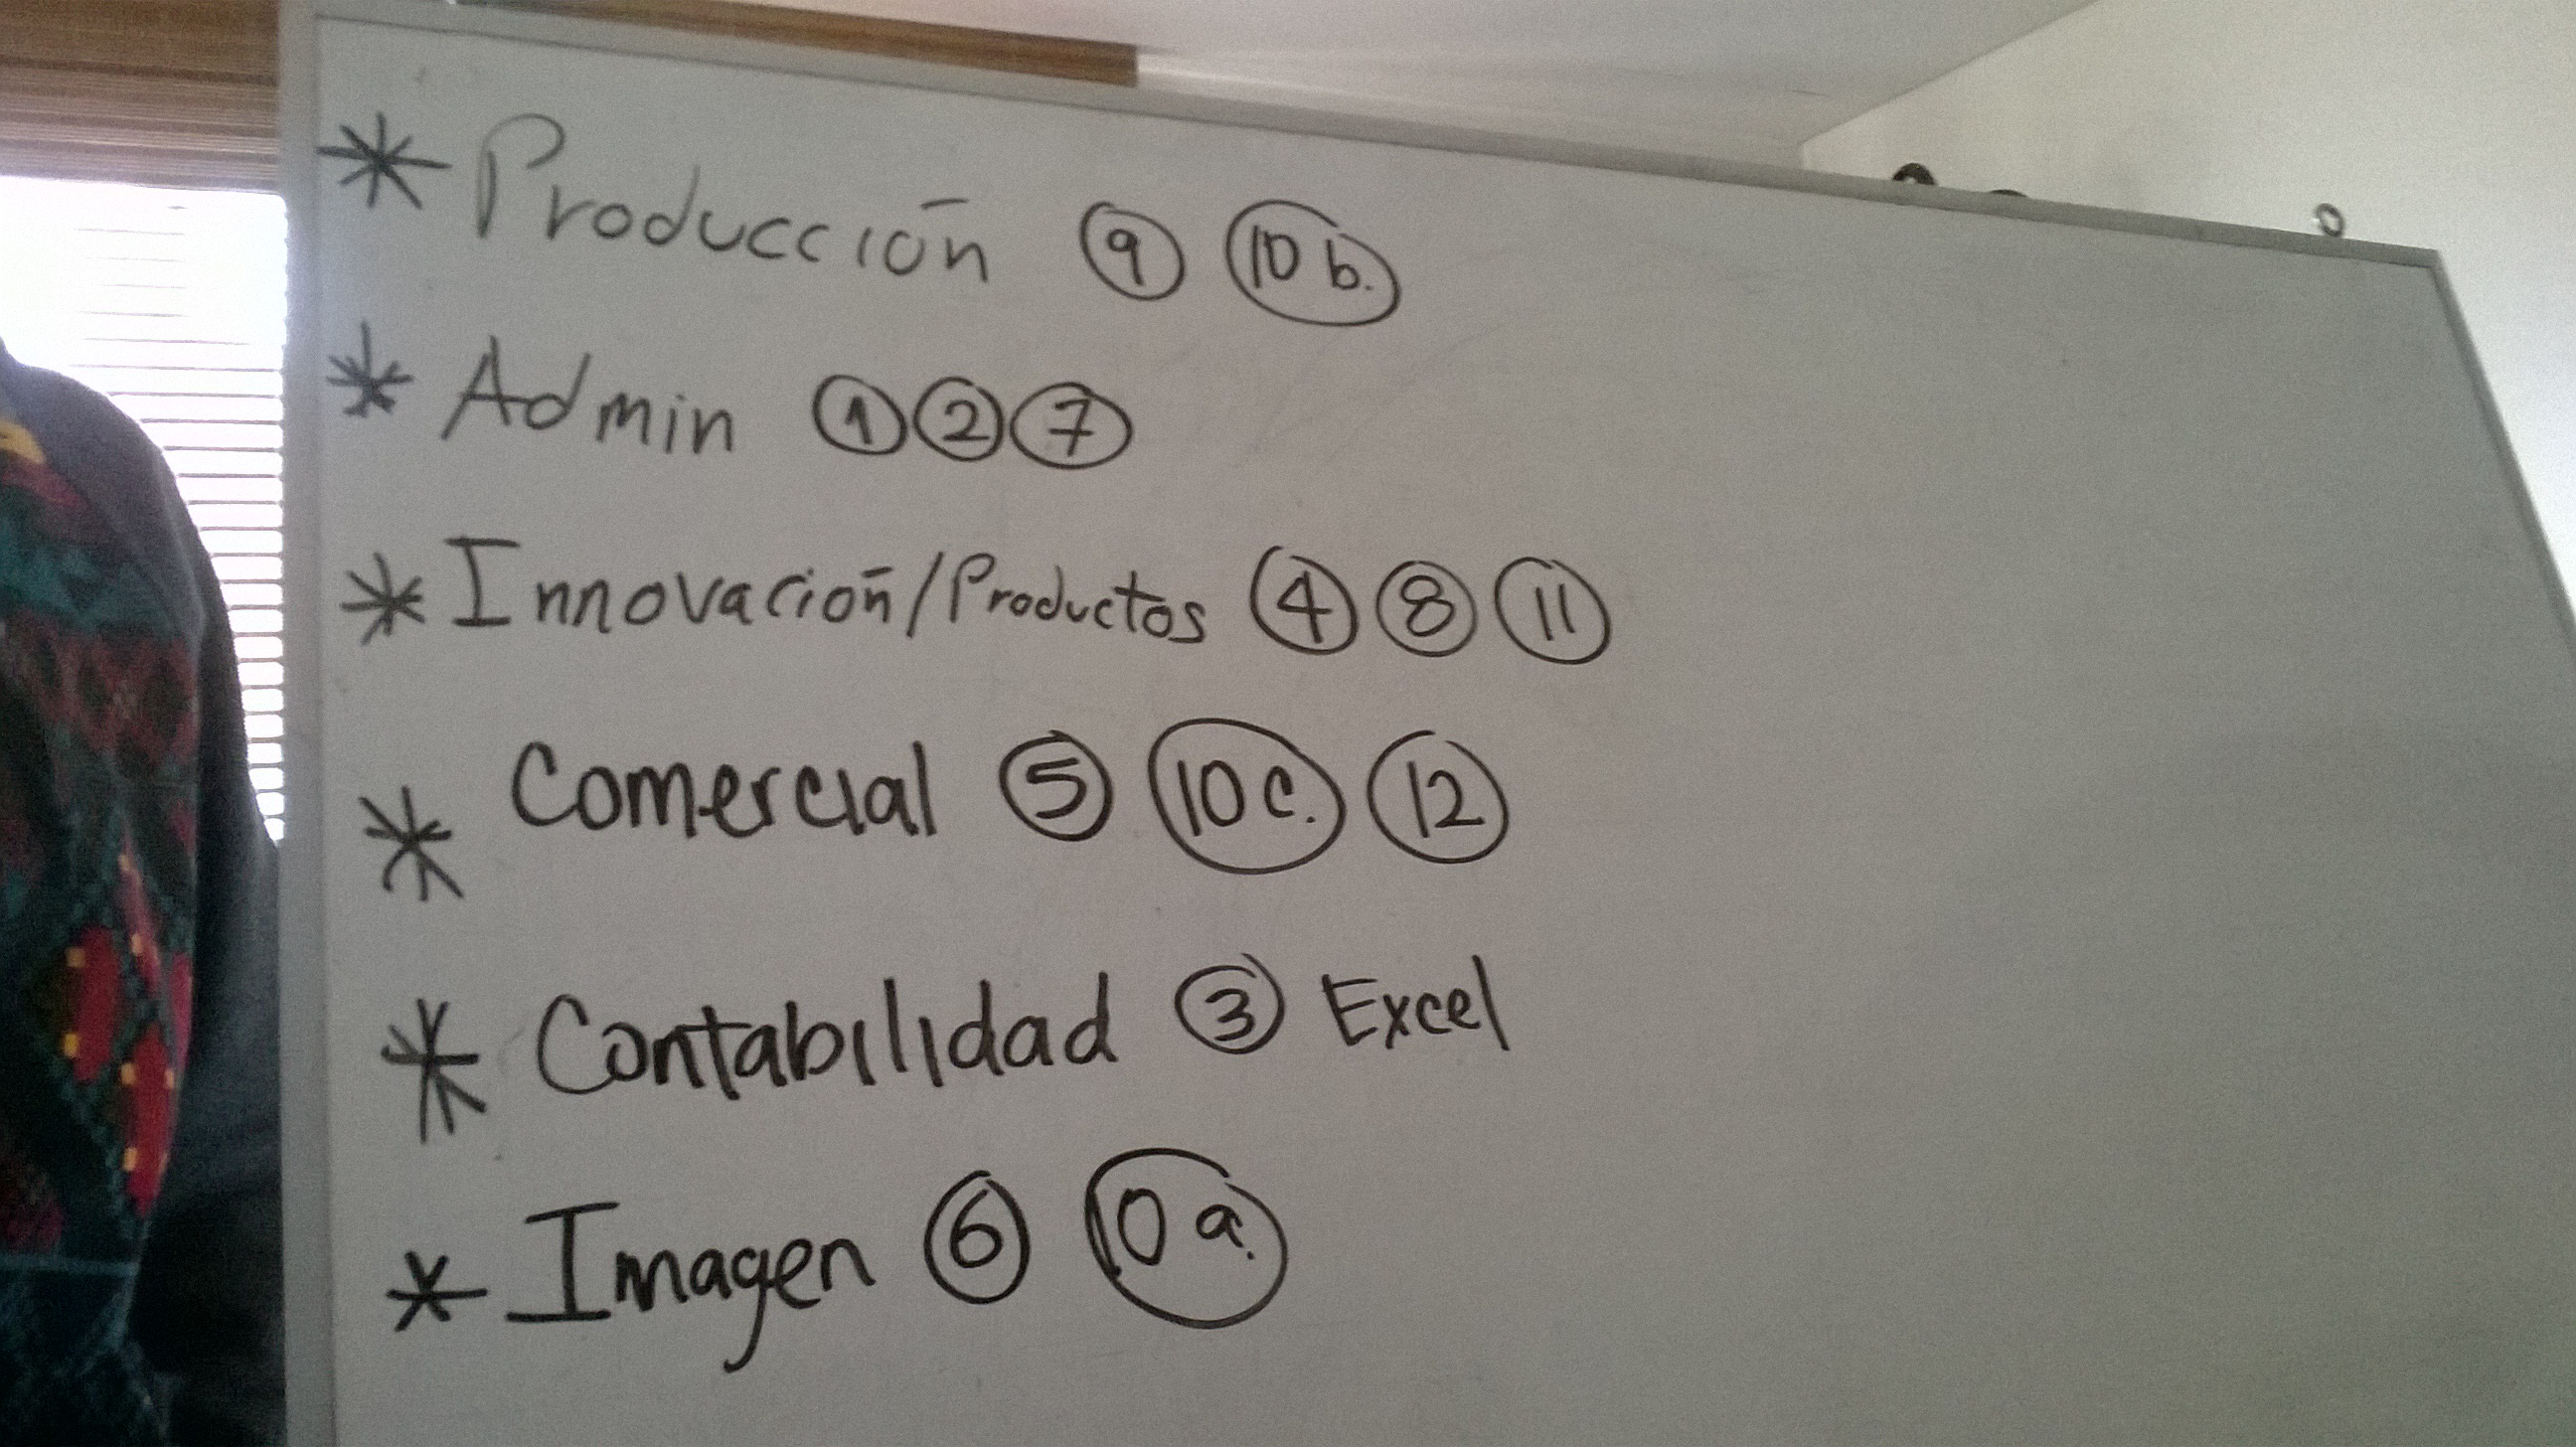 * Producción 9 10 b.
* Admin 1 2 7
* Innovación/Productos 4 8 11
* Comercial 5 10 c. 12
* Contabilidad 3 Excel
* Imagen 6 10 a.